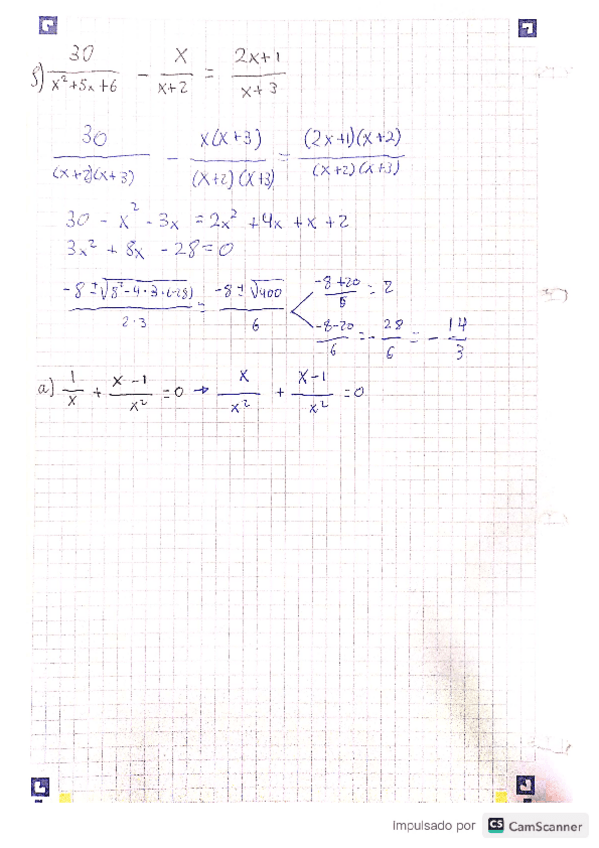 f) 30/(x²+5x+6) - x/(x+2) = (2x+1)/(x+3)
30/((x+2)(x+3)) - x(x+3)/((x+2)(x+3)) = (2x+1)(x+2)/((x+2)(x+3))
30 - x² - 3x = 2x² + 4x + x + 2
3x² + 8x - 28 = 0
(-8 ± √(8²-4·3·(-28)))/(2·3) = (-8 ± √400)/6
(-8+20)/6 = 2
(-8-20)/6 = -28/6 = -14/3
a) 1/x + (x-1)/x² = 0 → x/x² + (x-1)/x² = 0
Impulsado por CS CamScanner